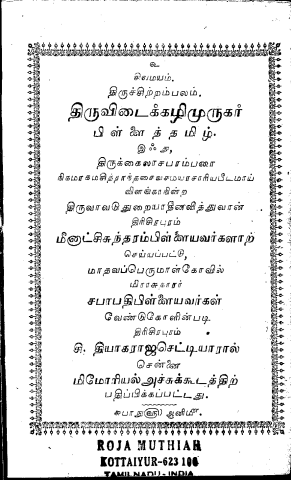 ௳
சிவமயம்.
திருச்சிற்றம்பலம்.
திருவிடைக்கழிமுருகர்
பிள்ளைத்தமிழ்.
இஃது,
திருக்கைலாசபரம்பரை
விளங்காகின்ற
திருவாவடுதுறையாதினவித்துவான்
திரிசிரபுரம்
மீனாட்சிசுந்தரம்பிள்ளையவர்களாற்
செய்யப்பட்டு,
மாதவப்பெருமாள்கோவில்
மிராசுகாரர்
சபாபதிபிள்ளையவர்கள்
வேண்டுகோளின்படி
திரிசிரபுரம்
சி. தியாகராஜசெட்டியாரால்
சென்னை
மிமோரியல்அச்சுக்கூடத்திற்
பதிப்பிக்கப்பட்டது.
ஆனிமீ
ROJA MUTHIAH
KOTTAIYUR-623 106
TAMILNADU - INDIA